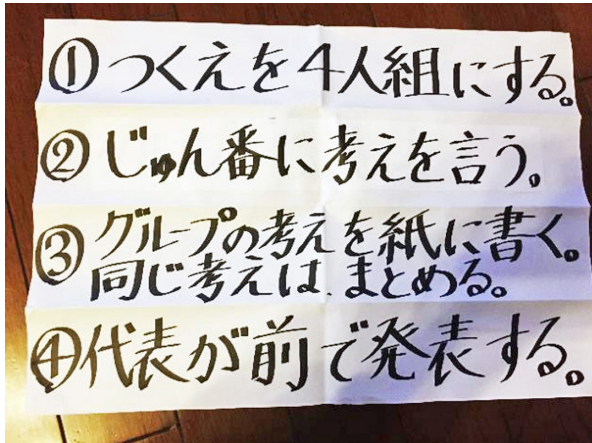 ①つくえを4人組にする。
②じゅん番に考えを言う。
③グループの考えを紙に書く。
同じ考えは、まとめる。
④代表が前で発表する。